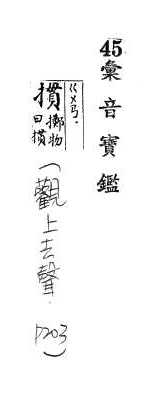 45彙音寶鑑
ㄍㄨㄢ
摜 擲物曰摜
(觀上去聲. P203)